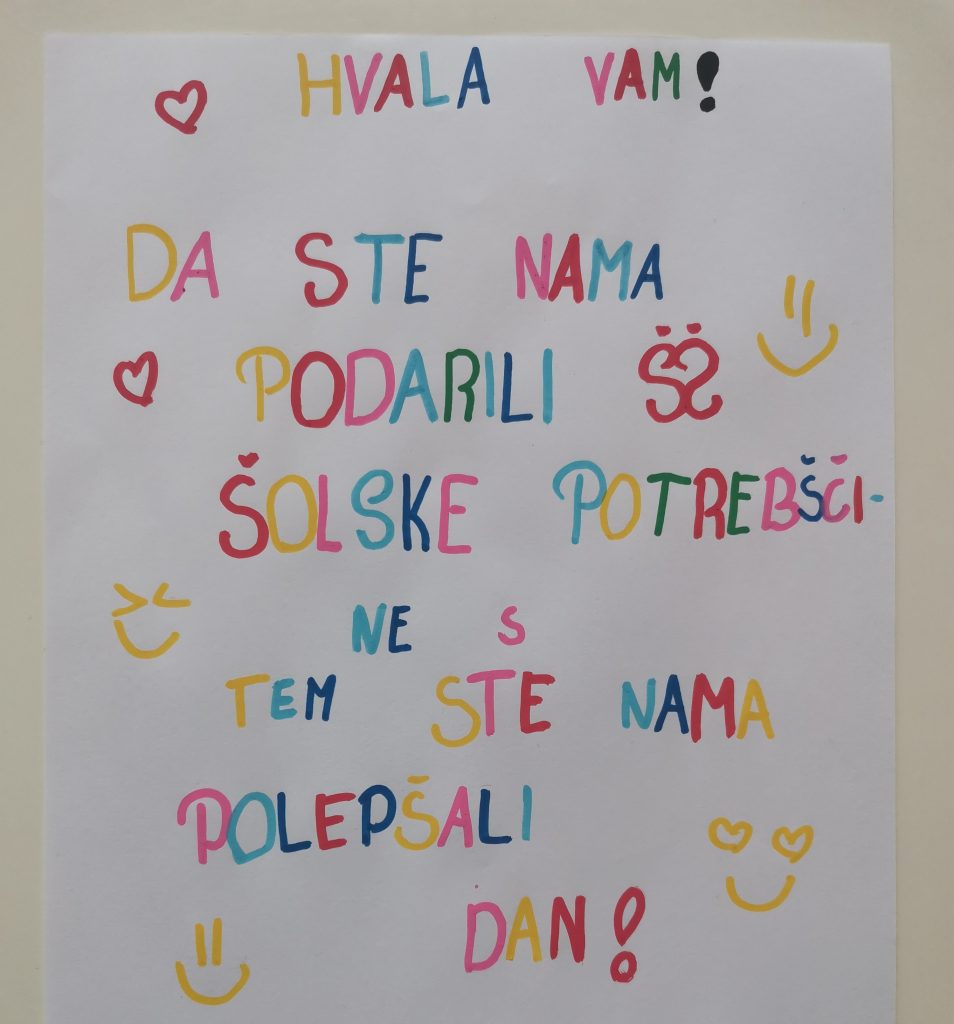 HVALA VAM!
DA STE NAMA
PODARILI
ŠOLSKE POTREBŠČI-
NE S
TEM STE NAMA
POLEPŠALI
DAN!